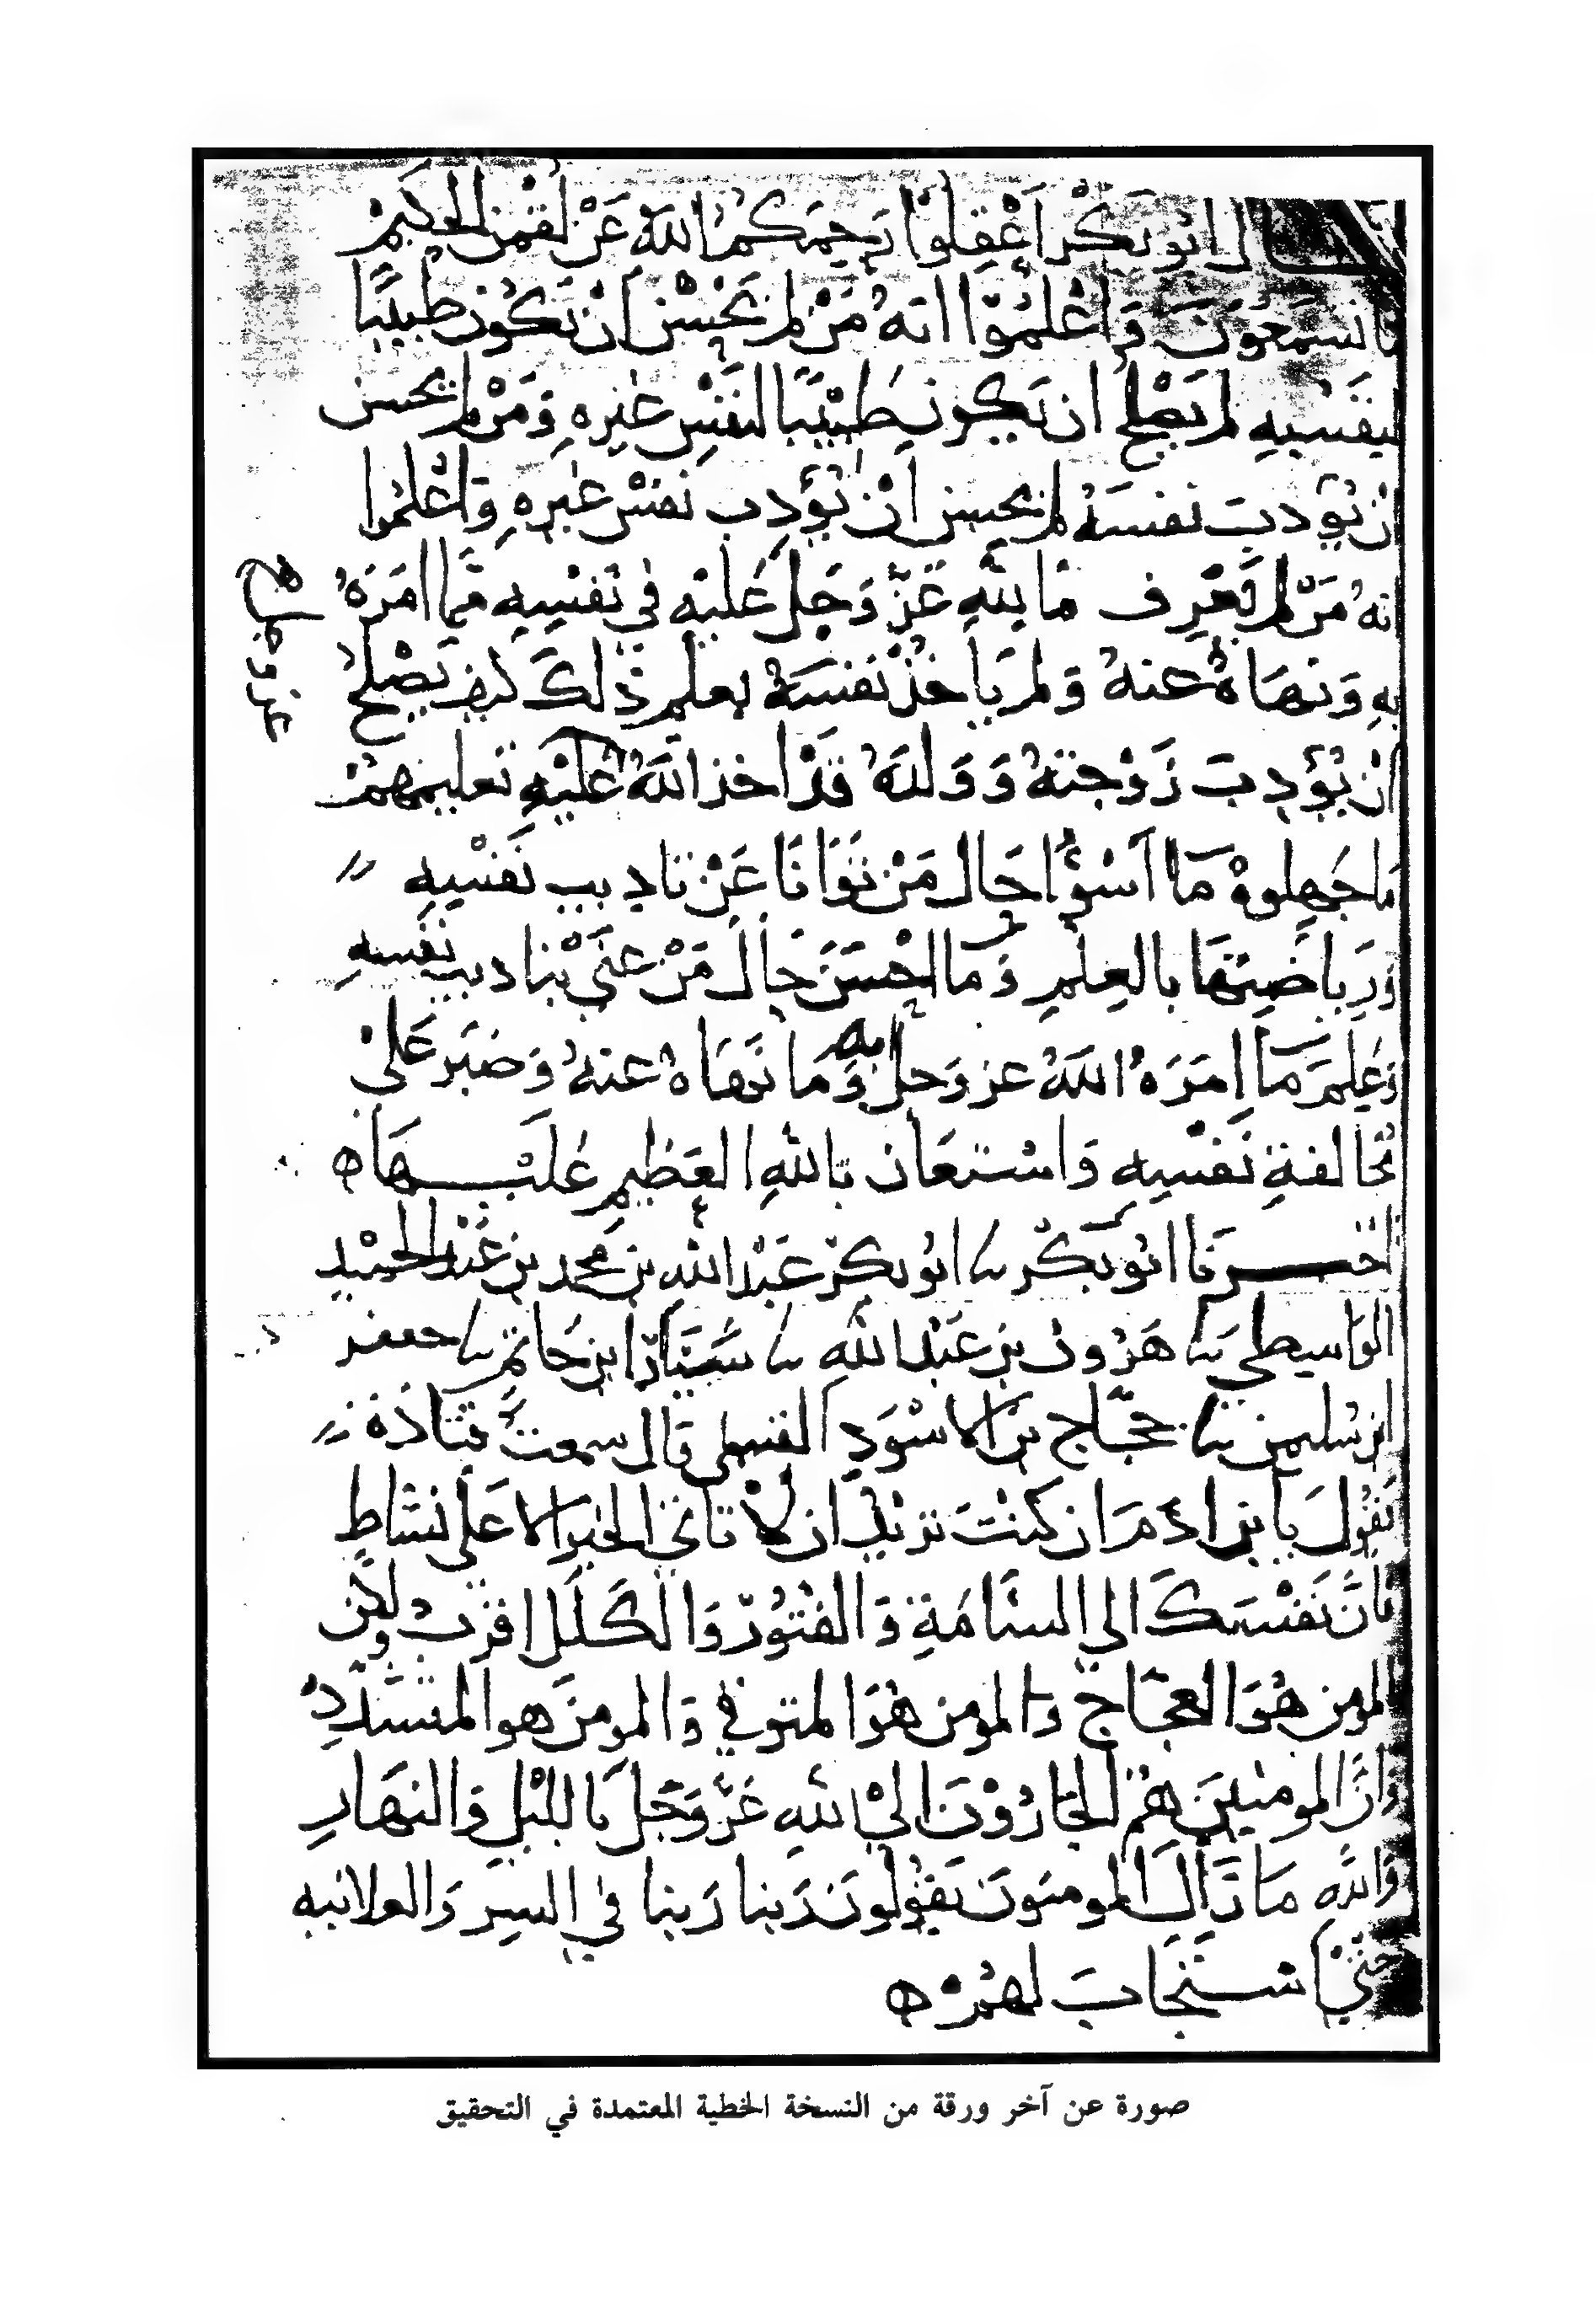 قال ابو بكر اعقلوا رحمكم الله عن لقمن الحكيم
ما تسمعون واعلموا انه من لم يحسن ان يكون طبيبا
لنفسه لم يصلح ان يكون طبيبا لنفس غيره ومن لم يحسن
ان يؤدب نفسه لم يحسن ان يؤدب نفس غيره واعلموا
انه من لم يعرف ما لله عز وجل عليه في نفسه مما امره
به ونهاه عنه ولم ياخذ نفسه بعلم ذلك كيف يصلح
ان يؤدب زوجته وولده قد اخذ الله عليه تعليمهم
ما جهلوه ما اسوا حال من توانا عن تاديب نفسه
ورياضتها بالعلم وما احسن حال من عني بتاديب نفسه
وعلم ما امره الله عز وجل به وما نهاه عنه وصبر على
مخالفة نفسه واستعان بالله العظيم عليها ه
اخبرنا ابو بكر نا ابو بكر عبد الله بن محمد بن عبد الحميد
الواسطي نا هرون بن عبد الله نا سيار ابن حاتم نا جعفر
ابن سليمن نا حجاج بن الاسود القسملي قال سمعت قتادة
يقول يا بن ادم ان كنت تريد ان لا تاتي الخير الا على نشاط
فان نفسك الى السامة والفتور والكلل اقرب ولكن
المومن هو العجاج والمومن هو المتوقي والمومن هو المتشدد
وان المومنين هم الجارون الى الله عز وجل بالليل والنهار
والله ما زال المومنون يقولون ربنا ربنا في السر والعلانيه
حتى استجاب لهم ه
صورة عن آخر ورقة من النسخة الخطية المعتمدة في التحقيق